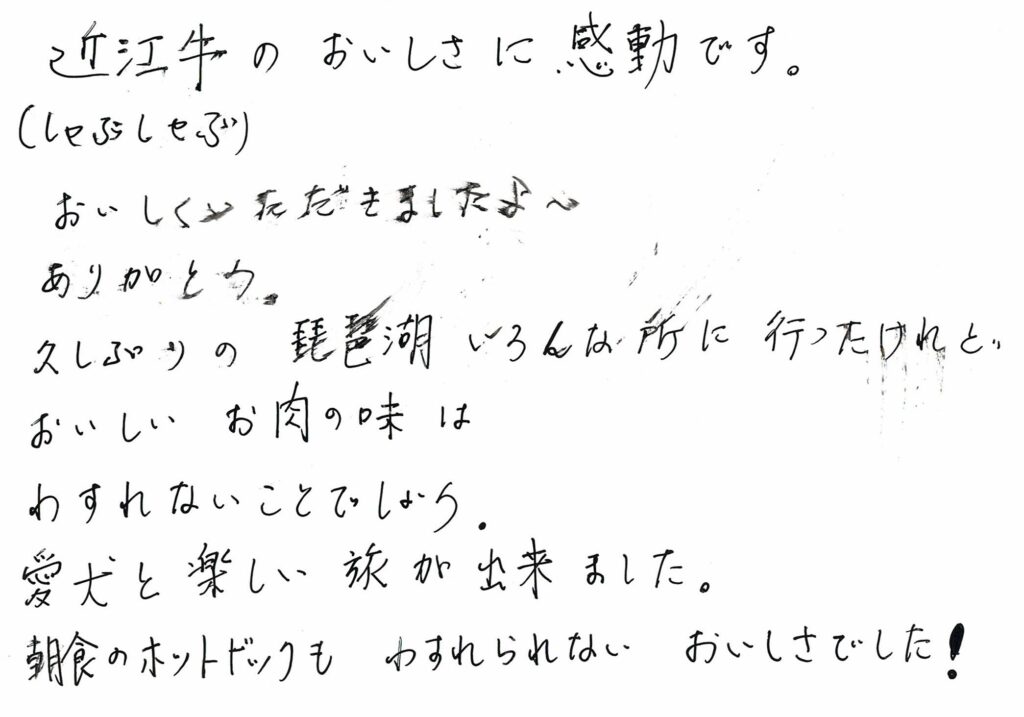 近江牛の おいしさに 感動です。
(しゃぶしゃぶ)
おいしくいただきましたよ〜
ありがとう。
久しぶりの 琵琶湖 いろんな所に 行ったけれど
おいしい お肉の味は
わすれないことでしょう.
愛犬と楽しい 旅が出来ました。
朝食のホットドックも わすれられない おいしさでした!